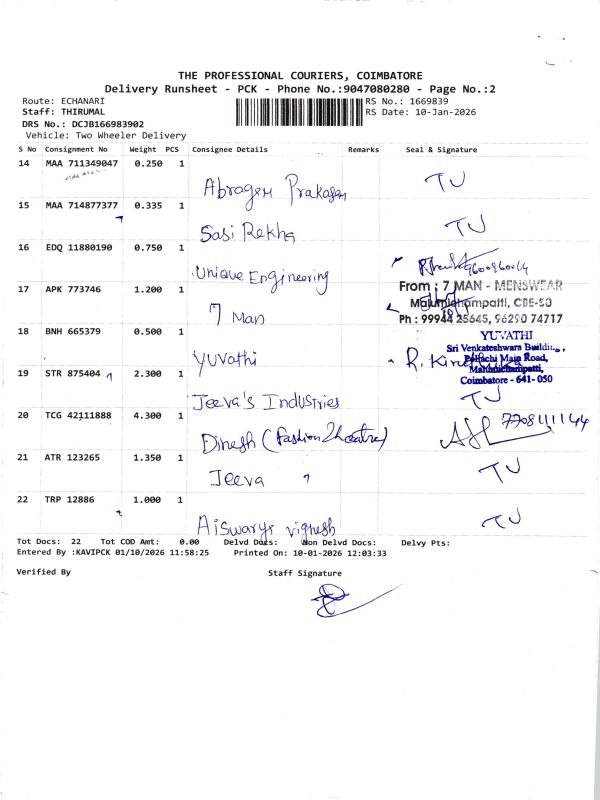 THE PROFESSIONAL COURIERS, COIMBATORE
Delivery Runsheet - PCK - Phone No.:9047080280 - Page No.:2
Route: ECHANARI RS No.: 1669839
Staff: THIRUMAL RS Date: 10-Jan-2026
DRS No.: DCJB166983902
Vehicle: Two Wheeler Delivery
S No Consignment No Weight PCS Consignee Details Remarks Seal & Signature
14 MAA 711349047 0.250 1 Abragam Prakasam TJ
15 MAA 714877377 0.335 1 Sasi Rekha TJ
16 EDQ 11880190 0.750 1 Unique Engineering
17 APK 773746 1.200 1 7 Man
From : 7 MAN - MENSWEAR
Malumichampatti, CBE-50
Ph : 99944 25645, 96290 74717
18 BNH 665379 0.500 1 Yuvathi R.
YUVATHI
Sri Venkateshwara Building,
Pollachi Main Road,
Malumichampatti,
Coimbatore - 641- 050
19 STR 875404 2.300 1 Jeeva's Industries TJ
20 TCG 42111888 4.300 1 Dinesh 7708111144
21 ATR 123265 1.350 1 Jeeva TJ
22 TRP 12886 1.000 1 Aiswarya vignesh TJ
Tot Docs: 22 Tot COD Amt: 0.00 Delvd Docs: Non Delvd Docs: Delvy Pts:
Entered By :KAVIPCK 01/10/2026 11:58:25 Printed On: 10-01-2026 12:03:33
Verified By Staff Signature